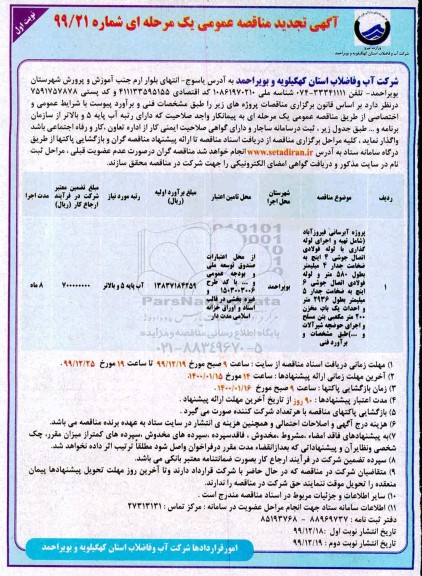 آگهی تجدید مناقصه عمومی یک مرحله ای شماره ۹۹/۲۱
نوبت اول
شرکت آب وفاضلاب استان کهگیلویه و بویراحمد
شرکت آب وفاضلاب استان کهگیلویه و بویراحمد به آدرس یاسوج- انتهای بلوار ارم جنب آموزش و پرورش شهرستان
بویراحمد- تلفن ۳۳۳۴۱۱۱۱-۰۷۴ شناسه ملی ۱۰۸۶۱۹۷۰۲۱۰ کد اقتصادی ۴۱۱۱۳۳۵۹۵۱۵۵ و کد پستی ۷۵۹۱۷۵۷۸۷۸
درنظر دارد بر اساس قانون برگزاری مناقصات پروژه های زیر را طبق مشخصات فنی و برآورد پیوست با شرایط عمومی و
اختصاصی از طریق مناقصه عمومی یک مرحله ای به پیمانکار واجد صلاحیت که دارای رتبه آب پایه ۵ و بالاتر از سازمان
برنامه و ... طبق جدول زیر ، ثبت درسامانه ساجار و دارای گواهی صلاحیت ایمنی کار از اداره تعاون ،کار و رفاه اجتماعی باشد
واگذار نماید. کلیه مراحل برگزاری مناقصه از دریافت اسناد مناقصه تا ارائه پیشنهاد مناقصه گران و بازگشایی پاکتها از طریق
درگاه سامانه ستاد به آدرس www.setadiran.ir انجام خواهد شد مناقصه گران درصورت عدم عضویت قبلی ، مراحل ثبت
نام در سایت مذکور و دریافت گواهی امضای الکترونیکی را جهت شرکت در مناقصه محقق سازند.
ردیف موضوع مناقصه شهرستان محل اجرا محل تامین اعتبار مبلغ برآورد اولیه (ریال) رتبه مورد نیاز مبلغ تضمین معتبر شرکت در فرآیند ارجاع کار (ریال) مدت اجرا
۱ پروژه آبرسانی فیروزآباد (شامل تهیه و اجرای لوله گذاری با لوله فولادی اتصال جوشی ۴ اینچ به ضخامت جدار ۴ میلیمتر بطول ۵۸۰ متر و لوله فولادی اتصال جوشی ۶ اینچ به ضخامت جدار ۵ میلیمتر بطول ۲۹۳۶ متر و احداث یک باب مخزن ۲۰۰ متر مکعبی بتن مسلح و اجرای حوضچه شیرآلات و ...)طبق مشخصات و برآورد فنی
بویراحمد
از محل اعتبارات صندوق توسعه ملی و بودجه عمومی و ... با کد طرح ۱۵۰۳۰۰۳۰۰۶ و غیره بخشی در قالب اسناد و اوراق خزانه اسلامی مدت دار
۱۳۸۳۷۱۸۴۲۵۹
آب پایه ۵ و بالاتر
۷۰۰۰۰۰۰۰۰
۸ ماه
۱) مهلت زمانی دریافت اسناد مناقصه از سایت : ساعت ۹ صبح مورخ ۹۹/۱۲/۱۹ تا ساعت ۱۹ مورخ ۰۹۹/۱۲/۲۵
۲) آخرین مهلت زمانی ارائه پیشنهادها : ساعت ۱۴ مورخ ۱۴۰۰/۰۱/۱۵.
۳) زمان بازگشایی پاکتها : ساعت ۹ صبح مورخ ۱۴۰۰/۰۱/۱۶.
۴) مدت اعتبار پیشنهادها : ۹۰ روز از تاریخ آخرین مهلت ارائه پیشنهاد .
۵) بازگشایی پاکتهای مناقصه با هرتعداد شرکت کننده صورت می گیرد .
۶) هزینه درج آگهی و اصلاحات احتمالی و همچنین هزینه ی انتشار در سایت ستاد به عهده برنده مناقصه می باشد.
۷)به پیشنهادهای فاقد امضاء ،مشروط ،مخدوش ، فاقدسپرده ،سپرده های مخدوش ،سپرده های کمتراز میزان مقرر، چک
شخصی ونظایرآن و پیشنهاداتی که بعدازانقضاء مدت مقرر درفراخوان واصل شود مطلقاً ترتیب اثر داده نخواهد شد.
۸) سپرده تضمین شرکت در فرآیند ارجاع کار بصورت ضمانتنامه معتبر بانکی می باشد.
۹) متقاضیان شرکت در مناقصه که در حال حاضر با شرکت قرارداد دارند وتا آخرین روز مهلت تحویل پیشنهادها پیمان
منعقده را تحویل موقت ننمایند حق شرکت در مناقصه را ندارند.
۱۰) سایر اطلاعات و جزئیات مربوط در اسناد مناقصه مندرج است .
۱۱) اطلاعات سامانه ستاد جهت انجام مراحل عضویت در سامانه : مرکز تماس : ۲۷۳۱۳۱۳۱
دفتر ثبت نامه : ۸۸۹۶۹۷۳۷ - ۸۵۱۹۳۷۶۸
تاریخ انتشار نوبت اول : ۹۹/۱۲/۱۸
تاریخ انتشار نوبت دوم : ۹۹/۱۲/۱۹
امورقراردادها شرکت آب وفاضلاب استان کهگیلویه و بویراحمد
۰۲۱-۸۸۳۴۹۶۷۰-۵